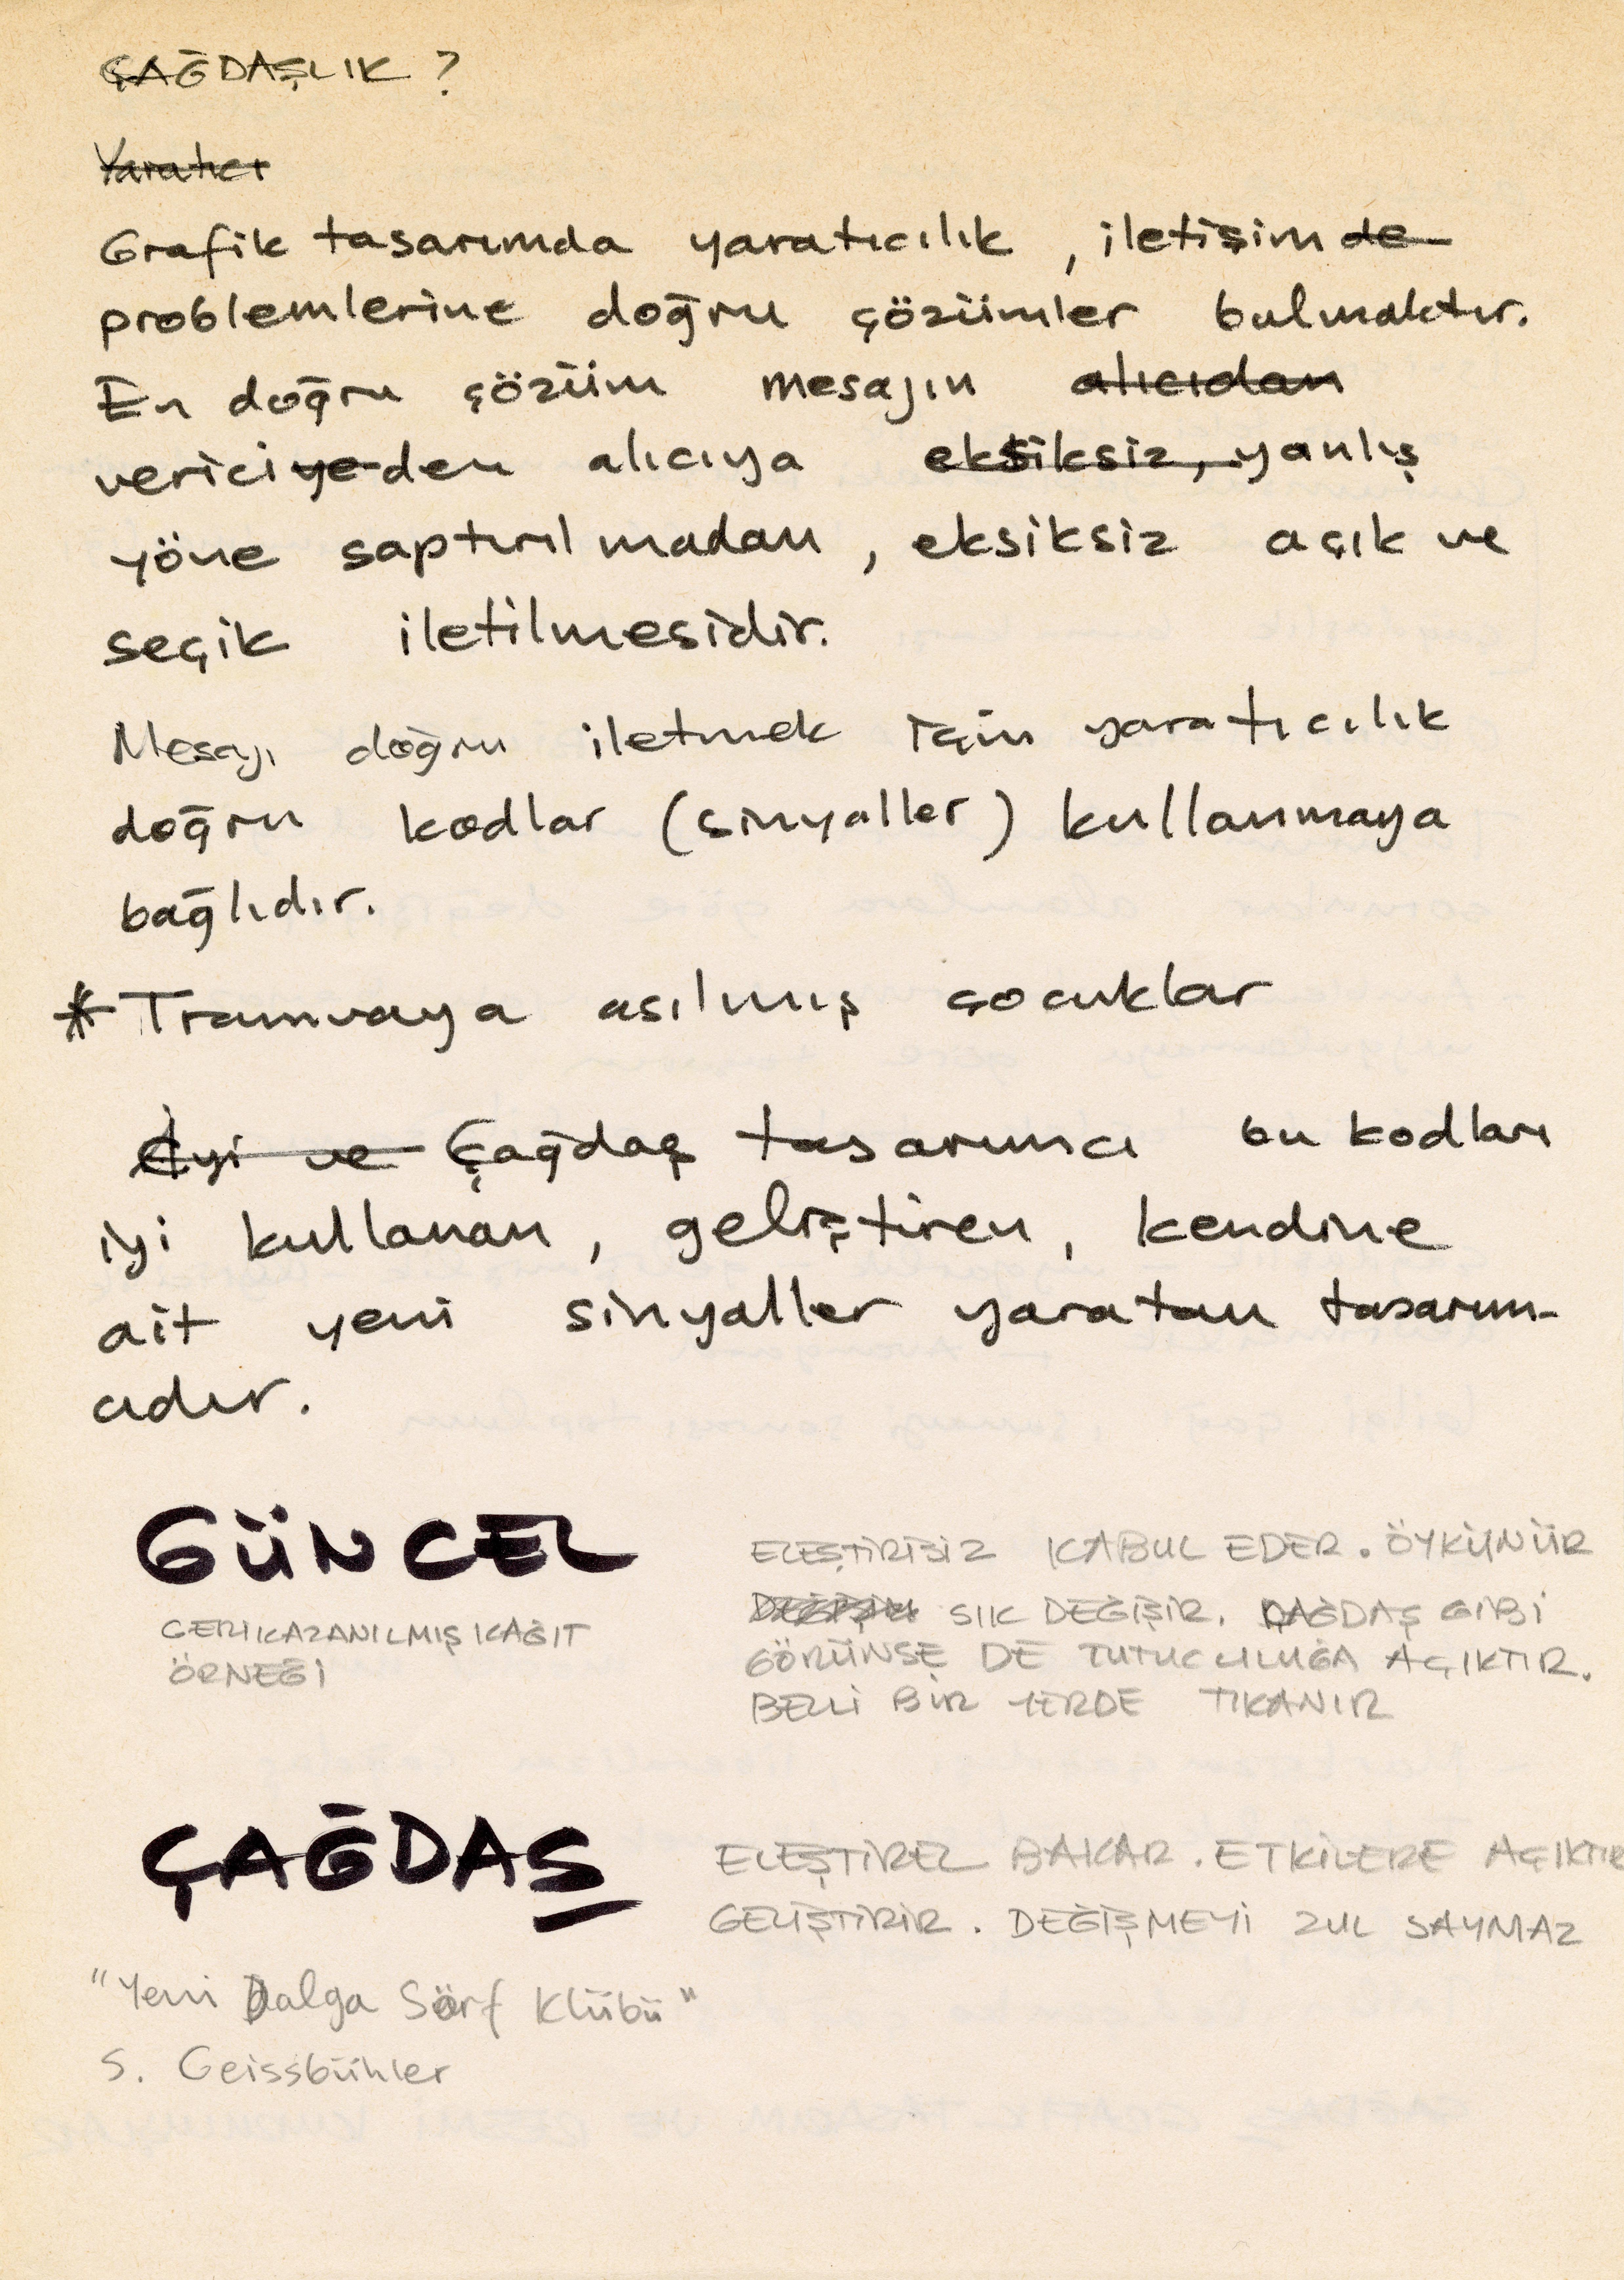 ÇAĞDAŞLIK ?
Yaratıcı
Grafik tasarımda yaratıcılık , iletişimde
problemlerine doğru çözümler bulmaktır.
En doğru çözüm mesajın alıcıdan
vericiyeden alıcıya eksiksiz, yanlış
yöne saptırılmadan , eksiksiz açık ve
seçik iletilmesidir.
Mesajı doğru iletmek için yaratıcılık
doğru kodlar (sinyaller) kullanmaya
bağlıdır.
* Tramvaya asılmış çocuklar
İyi ve Çağdaş tasarımcı bu kodları
iyi kullanan , geliştiren , kendine
ait yeni sinyaller yaratan tasarım-
cıdır.
GÜNCEL
GERİ KAZANILMIŞ KAĞIT
ÖRNEĞİ
ELEŞTİRİSİZ KABUL EDER. ÖYKÜNÜR
SIK DEĞİŞİR. ÇAĞDAŞ GİBİ
GÖRÜNSE DE TUTUCULUĞA AÇIKTIR.
BELLİ BİR YERDE TIKANIR
ÇAĞDAŞ
ELEŞTİREL BAKAR. ETKİLERE AÇIKTIR
GELİŞTİRİR. DEĞİŞMEYİ ZUL SAYMAZ
"Yeni Dalga Sörf Klübü"
S. Geissbühler